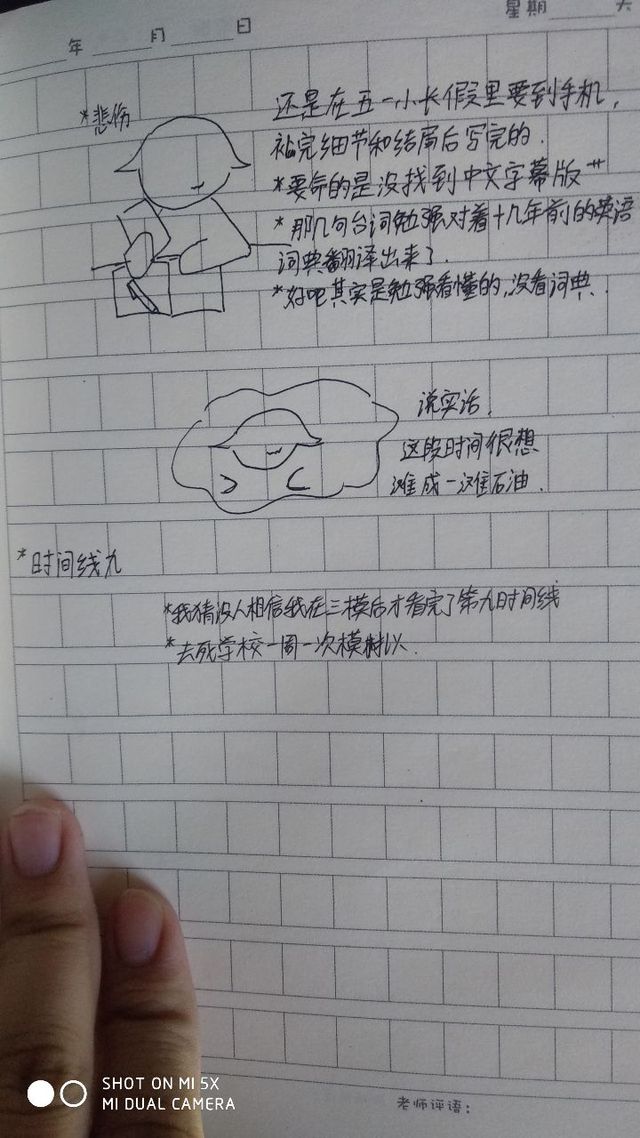 年 月 日 星期 天
*悲伤
还是在五一小长假里要到手机，
补完细节和结局后写完的．
*要命的是没找到中文字幕版
*那几句台词勉强对着十几年前的英语
词典翻译出来了．
*好吧其实是勉强看懂的，没看词典．
说实话，
这段时间很想
滩成一滩石油．
*时间线九
*我猜没人相信我在三模后才看完了第九时间线
*去死学校一周一次模拟．
老师评语：
SHOT ON MI 5X
MI DUAL CAMERA